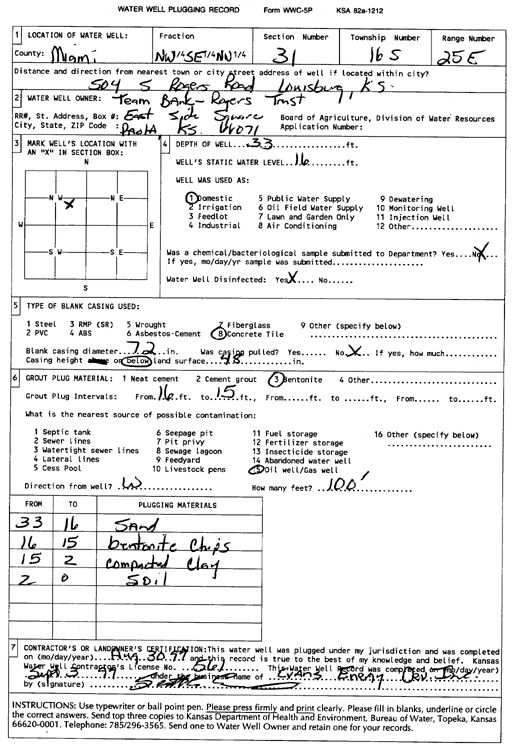 WATER WELL PLUGGING RECORD Form WWC-5P KSA 82a-1212
1 LOCATION OF WATER WELL: Fraction Section Number Township Number Range Number
County: Miami NW 1/4 SE 1/4 NW 1/4 31 16 S 25 E
Distance and direction from nearest town or city street address of well if located within city?
504 S Rogers Road Louisburg, KS.
2 WATER WELL OWNER: Team Bank - Rogers Trust
RR#, St. Address, Box #: East Side Square Board of Agriculture, Division of Water Resources
City, State, ZIP Code : Paola KS. 66071 Application Number:
3 MARK WELL'S LOCATION WITH AN "X" IN SECTION BOX:
N
N W X N E
W E
S W S E
S
4 DEPTH OF WELL...33...ft.
WELL'S STATIC WATER LEVEL..16..
WELL WAS USED AS:
1 Domestic 5 Public Water Supply 9 Dewatering
2 Irrigation 6 Oil Field Water Supply 10 Monitoring Well
3 Feedlot 7 Lawn and Garden Only 11 Injection Well
4 Industrial 8 Air Conditioning 12 Other...
Was a chemical/bacteriological sample submitted to Department? Yes....No X
If yes, mo/day/yr sample was submitted...
Water Well Disinfected: Yes X No......
5 TYPE OF BLANK CASING USED:
1 Steel 3 RMP (SR) 5 Wrought 7 Fiberglass 9 Other (specify below)
2 PVC 4 ABS 6 Asbestos-Cement 8 Concrete Tile
Blank casing diameter...72...in. Was casing pulled? Yes...... No X.. If yes, how much...
Casing height or below land surface...48...in.
6 GROUT PLUG MATERIAL: 1 Neat cement 2 Cement grout 3 Bentonite 4 Other...
Grout Plug Intervals: From. 16 ft. to 15 ft., From...... ft. to ......ft., From...... to......ft.
What is the nearest source of possible contamination:
1 Septic tank 6 Seepage pit 11 Fuel storage 16 Other (specify below)
2 Sewer lines 7 Pit privy 12 Fertilizer storage
3 Watertight sewer lines 8 Sewage lagoon 13 Insecticide storage
4 Lateral lines 9 Feedyard 14 Abandoned water well
5 Cess Pool 10 Livestock pens 15 Oil well/Gas well
Direction from well? W How many feet? 100'
FROM TO PLUGGING MATERIALS
33 16 Sand
16 15 bentonite Chips
15 2 compacted Clay
2 0 Soil
7 CONTRACTOR'S OR LANDOWNER'S CERTIFICATION: This water well was plugged under my jurisdiction and was completed
on (mo/day/year)...Aug 30 99 and this record is true to the best of my knowledge and belief. Kansas
Water Well Contractor's License No. 561 This Water Well Record was completed on (mo/day/year)
Sept. 3 99 under the business name of Evans Energy Dev. Inc
by (signature)
INSTRUCTIONS: Use typewriter or ball point pen. Please press firmly and print clearly. Please fill in blanks, underline or circle
the correct answers. Send top three copies to Kansas Department of Health and Environment, Bureau of Water, Topeka, Kansas
66620-0001. Telephone: 785/296-3565. Send one to Water Well Owner and retain one for your records.